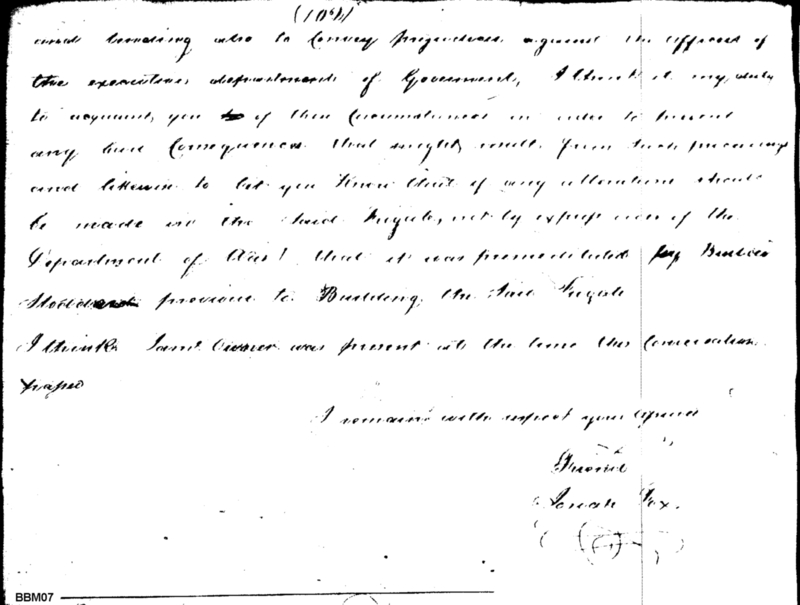 (104)
and tending also to Convey prejudices against the officers of
the executive department of Government, I think it my duty
to acquaint you to of this Circumstance in order to prevent
any bad Consequences that might result from such
and likewise to let you Know that if any alteration should
be made in the Said Frigate, not by express of the
Department of War! that it was premeditated by
previous to Building the Said Frigate
I think Saml was present at the time this Conversation
I remain with respect your
Friend
Josiah Fox.
BBM07